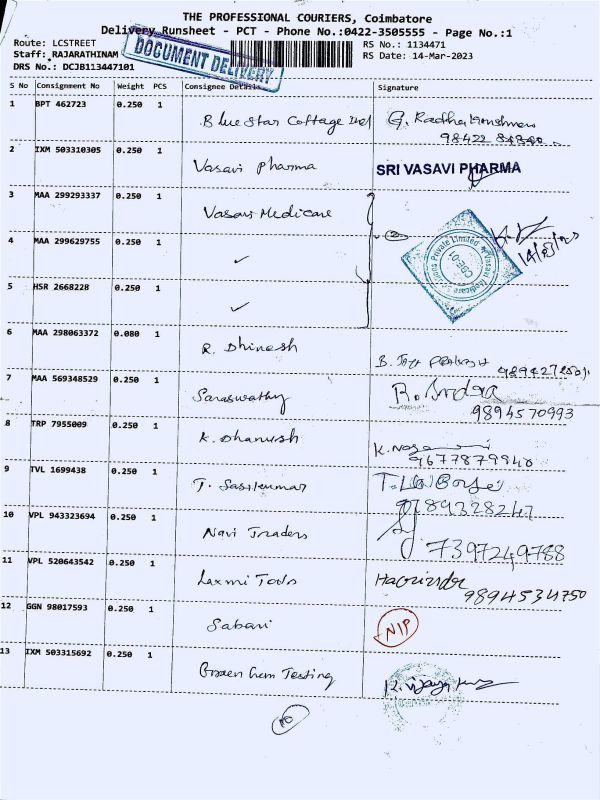 THE PROFESSIONAL COURIERS, Coimbatore
Delivery Runsheet - PCT - Phone No.:0422-3505555 - Page No.:1
Route: LCSTREET RS No.: 1134471
Staff: RAJARATHINAM RS Date: 14-Mar-2023
DRS No.: DCJB113447101
DOCUMENT DELIVERY
S No Consignment No Weight PCS Consignee Details Signature
1 BPT 462723 0.250 1 Blue Star Cottage G. Radha
98422
2 IXM 503310305 0.250 1 Vasavi Pharma SRI VASAVI PHARMA
3 MAA 299293337 0.250 1 Vasavi Medicare
4 MAA 299629755 0.250 1 ✓
5 HSR 2668228 0.250 1 ✓
6 MAA 298063372 0.080 1 R. Dhinesh B.
7 MAA 569348529 0.250 1 Saraswathy R.
9894570993
8 TRP 7955009 0.250 1 K. Dhanush
9677879940
9 TVL 1699438 0.250 1 T. Sasikumar
10 VPL 943323694 0.250 1 Navi Traders
7397249788
11 VPL 520643542 0.250 1 Laxmi Tools
9894534750
12 GGN 98017593 0.250 1 Sabari NIP
13 IXM 503315692 0.250 1 Green Chem Testing